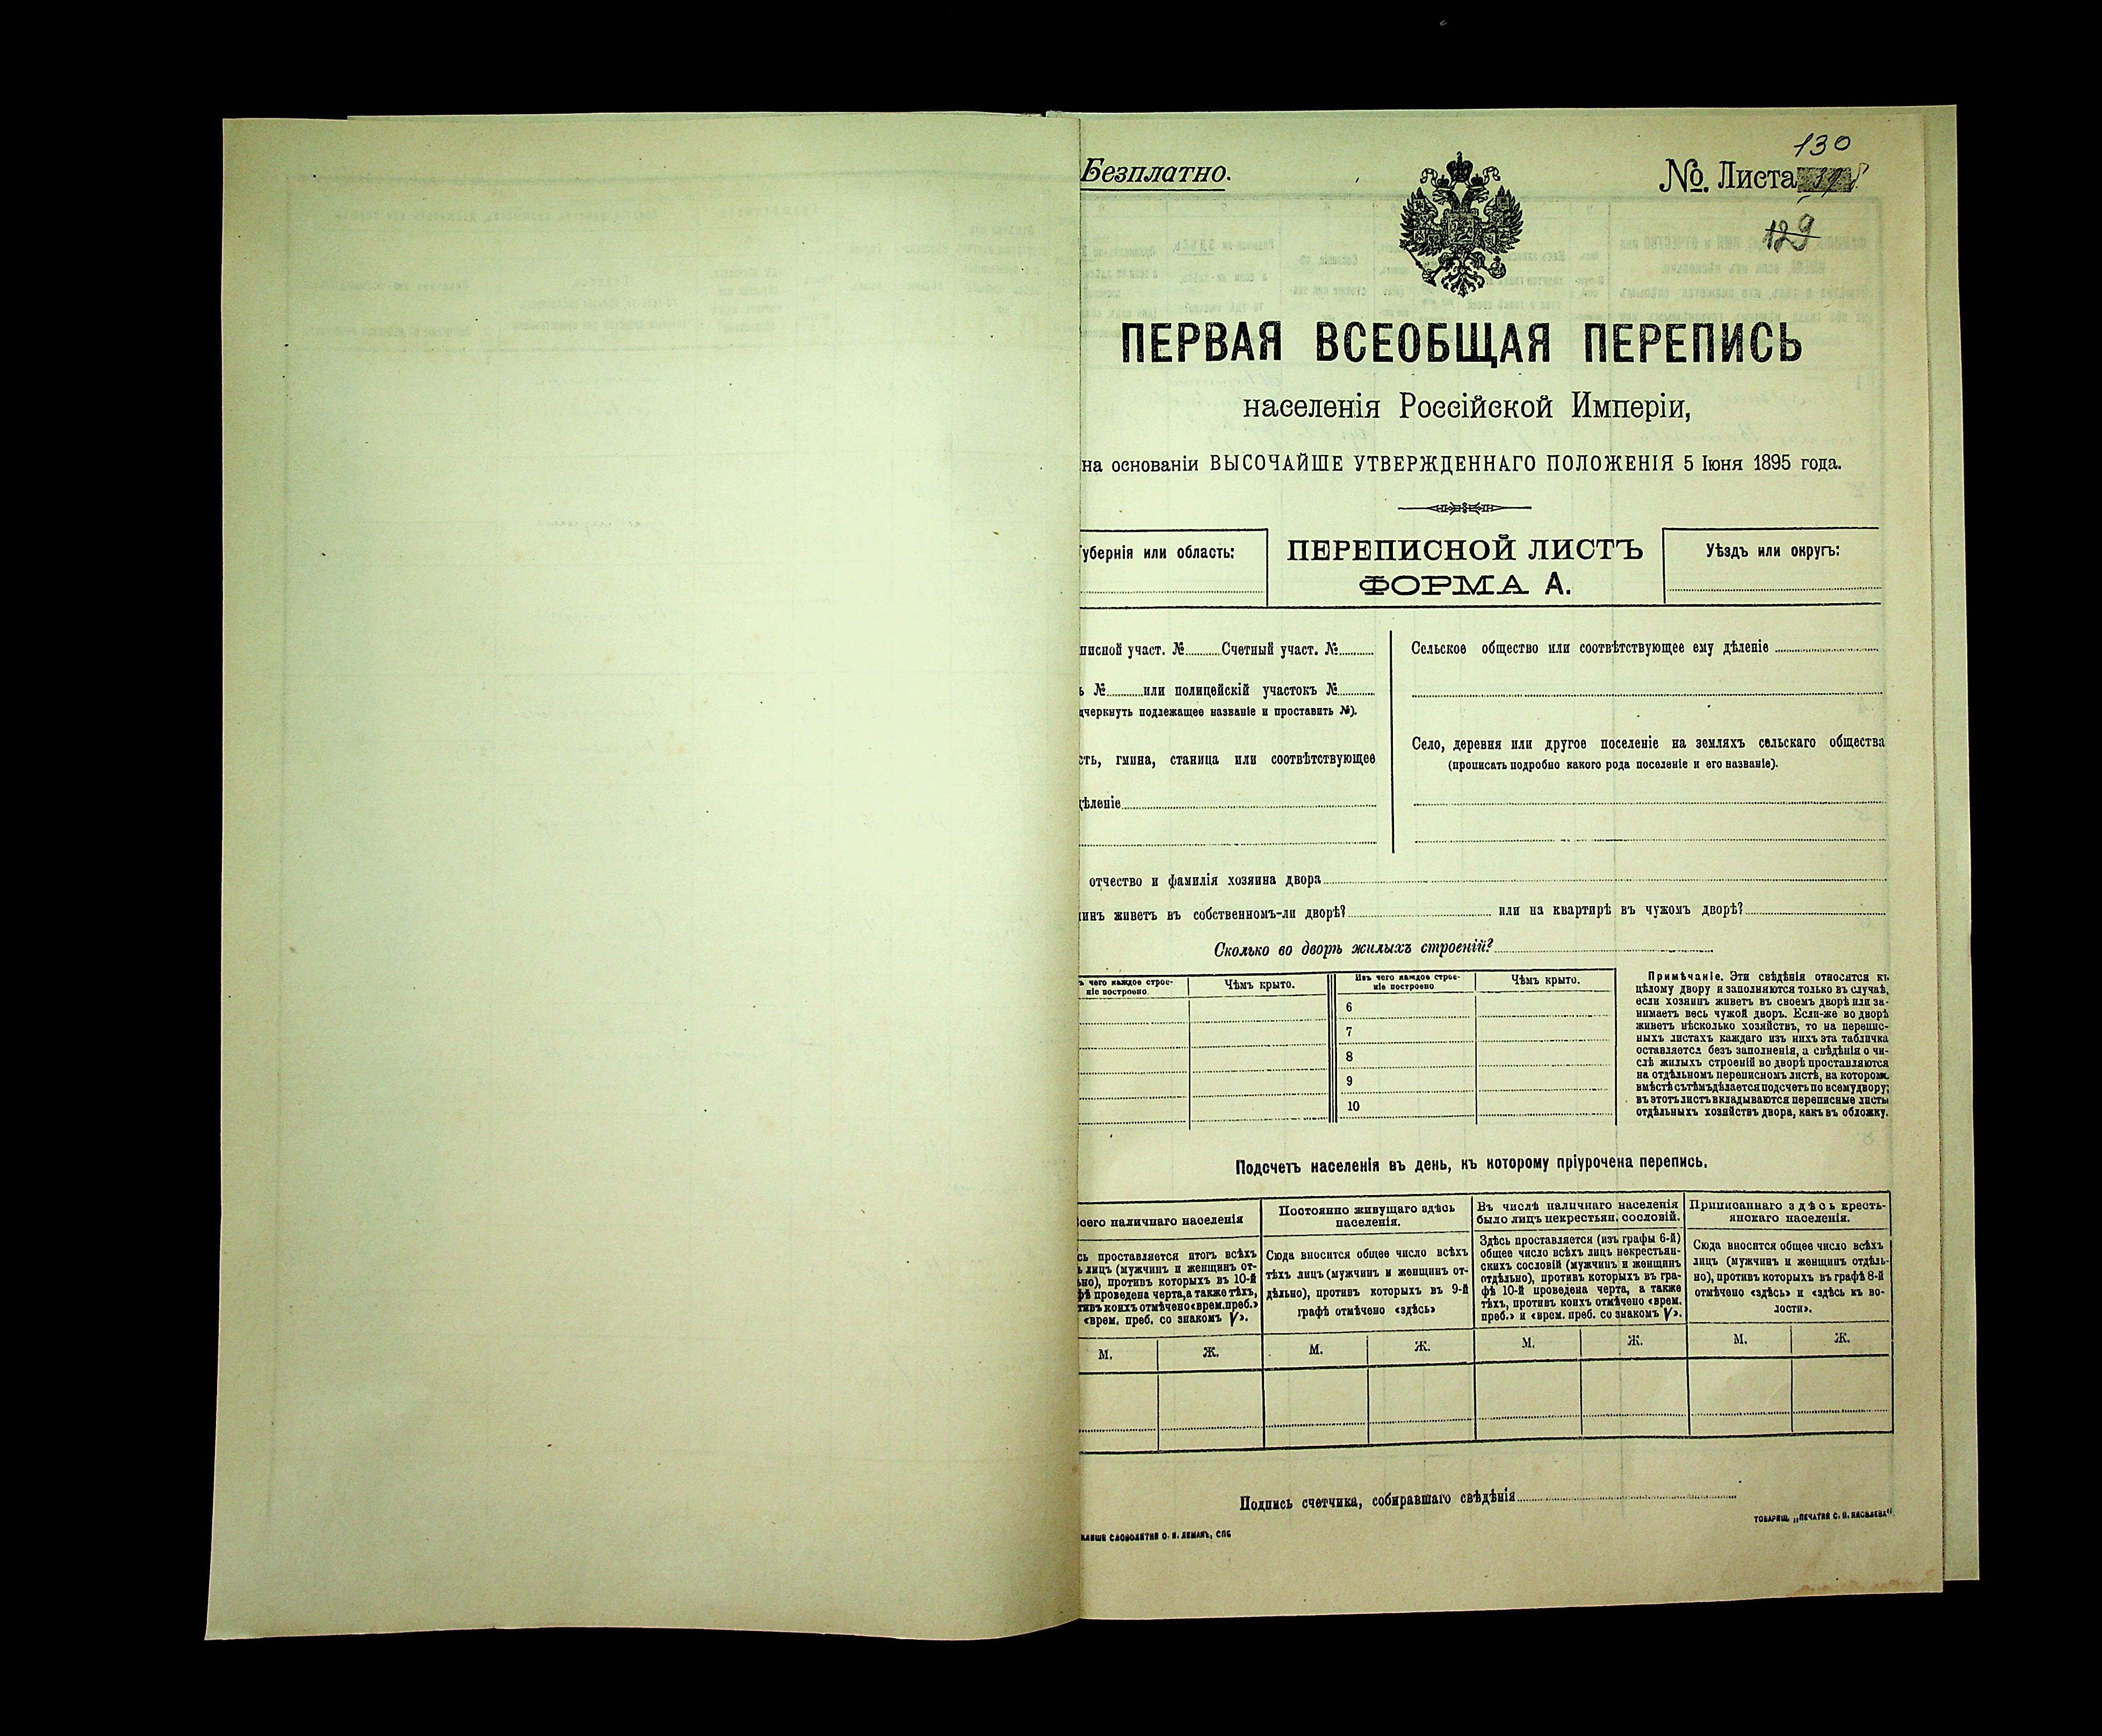 130
Безплатно.
№. Листа
129
ПЕРВАЯ ВСЕОБЩАЯ ПЕРЕПИСЬ
населенія Россійской Имперіи,
на основаніи ВЫСОЧАЙШЕ УТВЕРЖДЕННАГО ПОЛОЖЕНІЯ 5 Іюня 1895 года.
убернія или область:
ПЕРЕПИСНОЙ ЛИСТЪ
ФОРМА А.
Уѣздъ или округъ:
писной участ. № Счетный участ. №
ь № или полицейскій участокъ №
дчеркнуть подлежащее названіе и проставить №).
сть, гмина, станица или соотвѣтствующее
дѣленіе
Сельское общество или соотвѣтствующее ему дѣленіе
Село, деревня или другое поселеніе на земляхъ сельскаго общества
(прописать подробно какого рода поселеніе и его названіе).
отчество и фамилія хозяина двора
инъ живетъ въ собственномъ-ли дворѣ? или на квартирѣ въ чужомъ дворѣ?
Сколько во дворѣ жилыхъ строеній?
ъ чего каждое строе-
ніе построено
Чѣмъ крыто.
Изъ чего каждое строе-
ніе построено
Чѣмъ крыто.
6
7
8
9
10
Примѣчаніе. Эти свѣдѣнія относятся къ
цѣлому двору и заполняются только въ случаѣ,
если хозяинъ живетъ въ своемъ дворѣ или за-
нимаетъ весь чужой дворъ. Если-же во дворѣ
живетъ нѣсколько хозяйствъ, то на перепис-
ныхъ листахъ каждаго изъ нихъ эта табличка
оставляется безъ заполненія, а свѣдѣнія о чи-
слѣ жилыхъ строеній во дворѣ проставляются
на отдѣльномъ переписномъ листѣ, на которомъ
вмѣстѣ съ тѣмъ дѣлается подсчетъ по всему двору;
въ этотъ листъ вкладываются переписные листы
отдѣльныхъ хозяйствъ двора, какъ въ обложку.
Подсчетъ населенія въ день, къ которому пріурочена перепись.
сего наличнаго населенія
сь проставляется итогъ всѣхъ
ъ лицъ (мужчинъ и женщинъ от-
ьно), противъ которыхъ въ 10-й
фѣ проведена черта, а также тѣхъ,
тивъ коихъ отмѣчено «врем. преб.»
«врем. преб. со знакомъ V».
Постоянно живущаго здѣсь
населенія.
Сюда вносится общее число всѣхъ
тѣхъ лицъ (мужчинъ и женщинъ от-
дѣльно), противъ которыхъ въ 9-й
графѣ отмѣчено «здѣсь»
Въ числѣ наличнаго населенія
было лицъ некрестьян. сословій.
Здѣсь проставляется (изъ графы 6-й)
общее число всѣхъ лицъ некрестьян-
скихъ сословій (мужчинъ и женщинъ
отдѣльно), противъ которыхъ въ гра-
фѣ 10-й проведена черта, а также
тѣхъ, противъ коихъ отмѣчено «врем.
преб.» и «врем. преб. со знакомъ V».
Приписаннаго здѣсь кресть-
янскаго населенія.
Сюда вносится общее число всѣхъ
лицъ (мужчинъ и женщинъ отдѣль-
но), противъ которыхъ въ графѣ 8-й
отмѣчено «здѣсь» и «здѣсь къ во-
лости».
М. Ж. М. Ж. М. Ж. М. Ж.
Подпись счетчика, собиравшаго свѣдѣнія
СЛОВОЛИТНИ О. И. ЛЕМАНЪ, СПБ
ТОВАРИЩ. „ПЕЧАТНЯ С. П. ЯКОВЛЕВА“